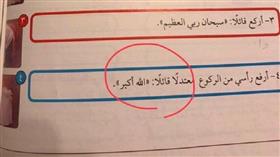 ٣- أركع قائلًا: «سبحان ربي العظيم».
٤- أرفع رأسي من الركوع معتدلًا قائلًا: «الله أكبر».